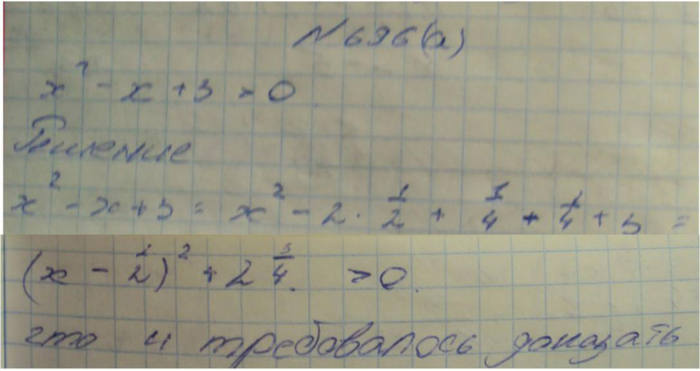 N696(а)
x² - x + 3 > 0
Решение
x² - x + 3 = x² - 2 · 1/2 + 1/4 + 1/4 + 3 =
(x - 1/2)² + 2 3/4 > 0.
что и требовалось доказать